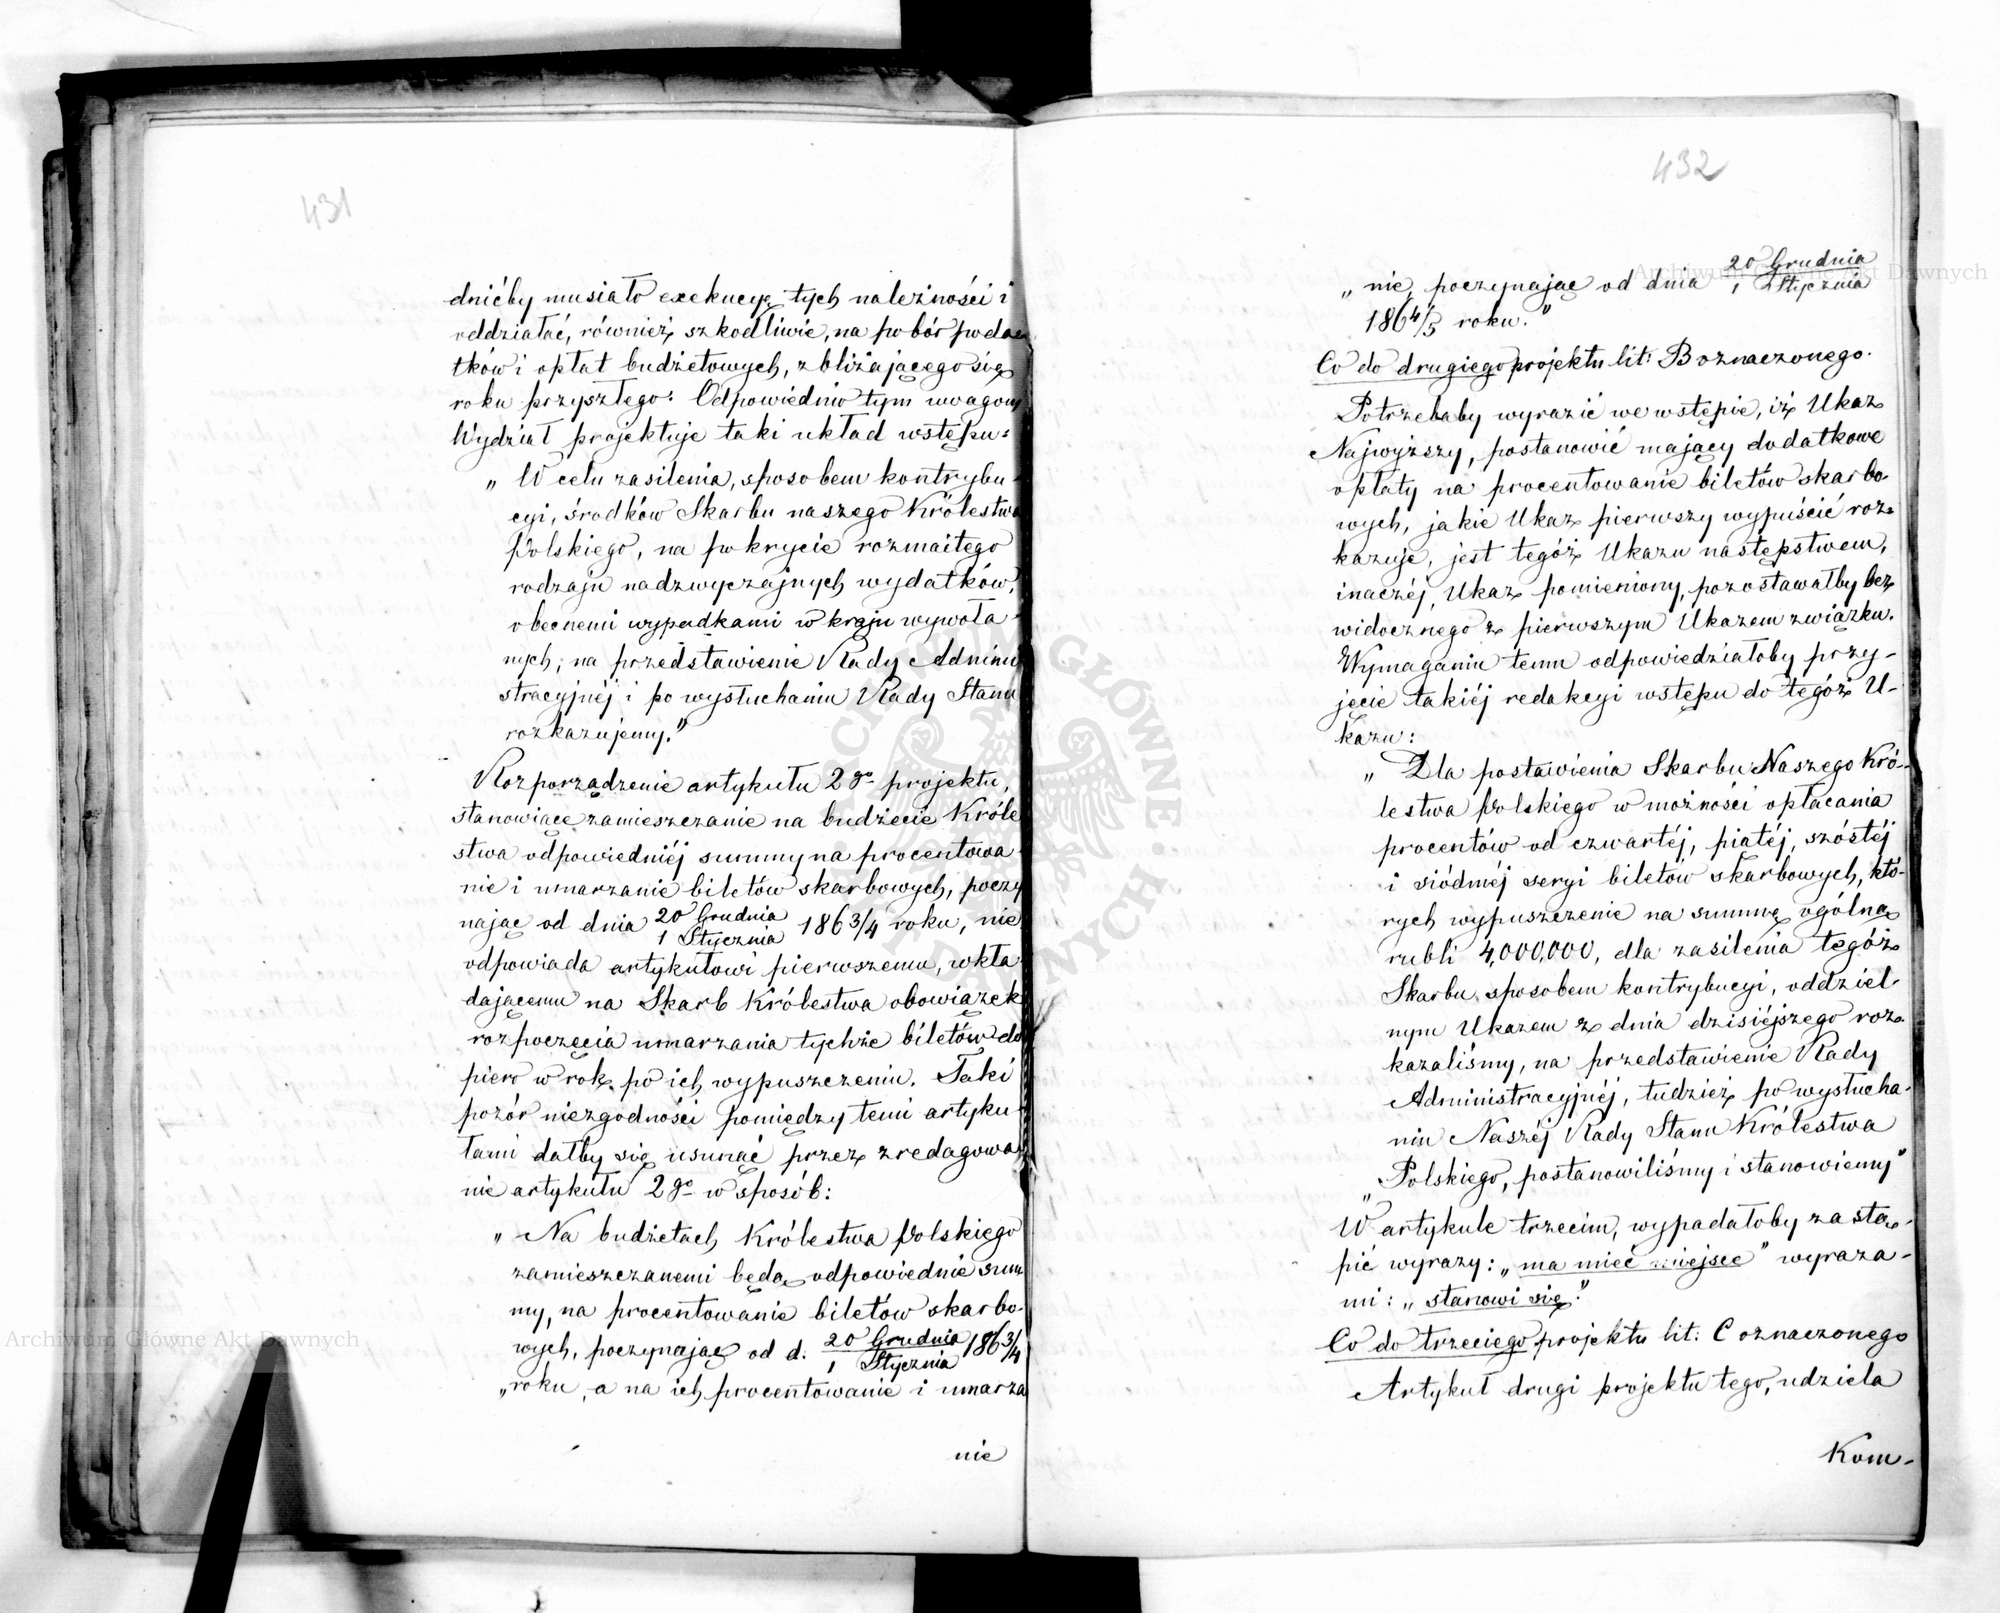 431
dnićby musiało exekucyę tych należności i
oddziałać, również szkodliwie, na pobór poda-
tków i opłat budżetowych, zbliżającego się
roku przyszłego: Odpowiednio tym uwagom
Wydział projektuje taki układ wstępu:
„ W celu zasilenia, sposobem kontrybu-
cyi, środków Skarbu naszego Królestwa
Polskiego, na pokrycie rozmaitego
rodzaju nadzwyczajnych wydatków,
obecnemi wypadkami w kraju wywoła-
nych; na przedstawienie Rady Admini-
stracyjnéj i po wysłuchaniu Rady Stanu
rozkazujemy."
Rozporządzenie artykułu 2go projektu,
stanowiące zamieszczanie na budżecie Króle
stwa odpowiedniéj summy na procentowa-
nie i umarzanie biletów skarbowych, poczy
nając od dnia 20 Grudnia/1 Stycznia 1863/4 roku, nie
odpowiada artykułowi pierwszemu, wkła-
dającemu na Skarb Królestwa obowiązek
rozpoczęcia umarzania tychże biletów do
piero w rok po ich wypuszczeniu. Taki
pozór niezgodności pomiędzy temi artyku-
łami dałby się usunąć przez zredagowa-
nie artykułu 2go w sposób:
„ Na budżetach Królestwa Polskiego
zamieszczanemi będą odpowiednie sum
my, na procentowanie biletów skarbo-
wych, poczynając od d. 20 Grudnia/1 Stycznia 1863/4
„roku, a na ich procentowanie i umarza
nie
432
„ nie, poczynając od dnia 20 Grudnia/1 Stycznia
1864/5 roku."
Co do drugiego projektu lit: B oznaczonego.
Potrzebaby wyrazić we wstępie, iż Ukaz
Najwyższy, postanowić mający dodatkowe
opłaty na procentowanie biletów skarbo-
wych, jakie Ukaz pierwszy wypuścić roz-
kazuje, jest tegóż Ukazu następstwem,
inaczéj, Ukaz pomieniony, pozostawałby bez
widocznego z pierwszym Ukazem związku.
Wymaganiu temu odpowiedziałoby przy-
jęcie takiéj redakcyi wstępu do tegóż U-
kazu:
„ Dla postawienia Skarbu Naszego Kró-
lestwa Polskiego w możności opłacania
procentów od czwartéj, piątéj, szóstéj
i siódméj seryi biletów skarbowych, któ-
rych wypuszczenie na summę ogólną
rubli 4,000,000, dla zasilenia tegóż
Skarbu sposobem kontrybucyi, oddziel-
nym Ukazem z dnia dzisiéjszego roz-
kazaliśmy, na przedstawienie Rady
Administracyjnéj, tudzież po wysłucha-
niu Naszéj Rady Stanu Królestwa
„Polskiego, postanowiliśmy i stanowiemy"
W artykule trzecim, wypadałoby zastą-
pić wyrazy: „ma mieć miejsce" wyraza-
mi: „stanowi się."
Co do trzeciego projektu lit: C oznaczonego
Artykuł drugi projektu tego, udziela
Kom-
Archiwum Główne Akt Dawnych
Archiwum Główne Akt Dawnych
ARCHIWUM GŁÓWNE AKT DAWNYCH